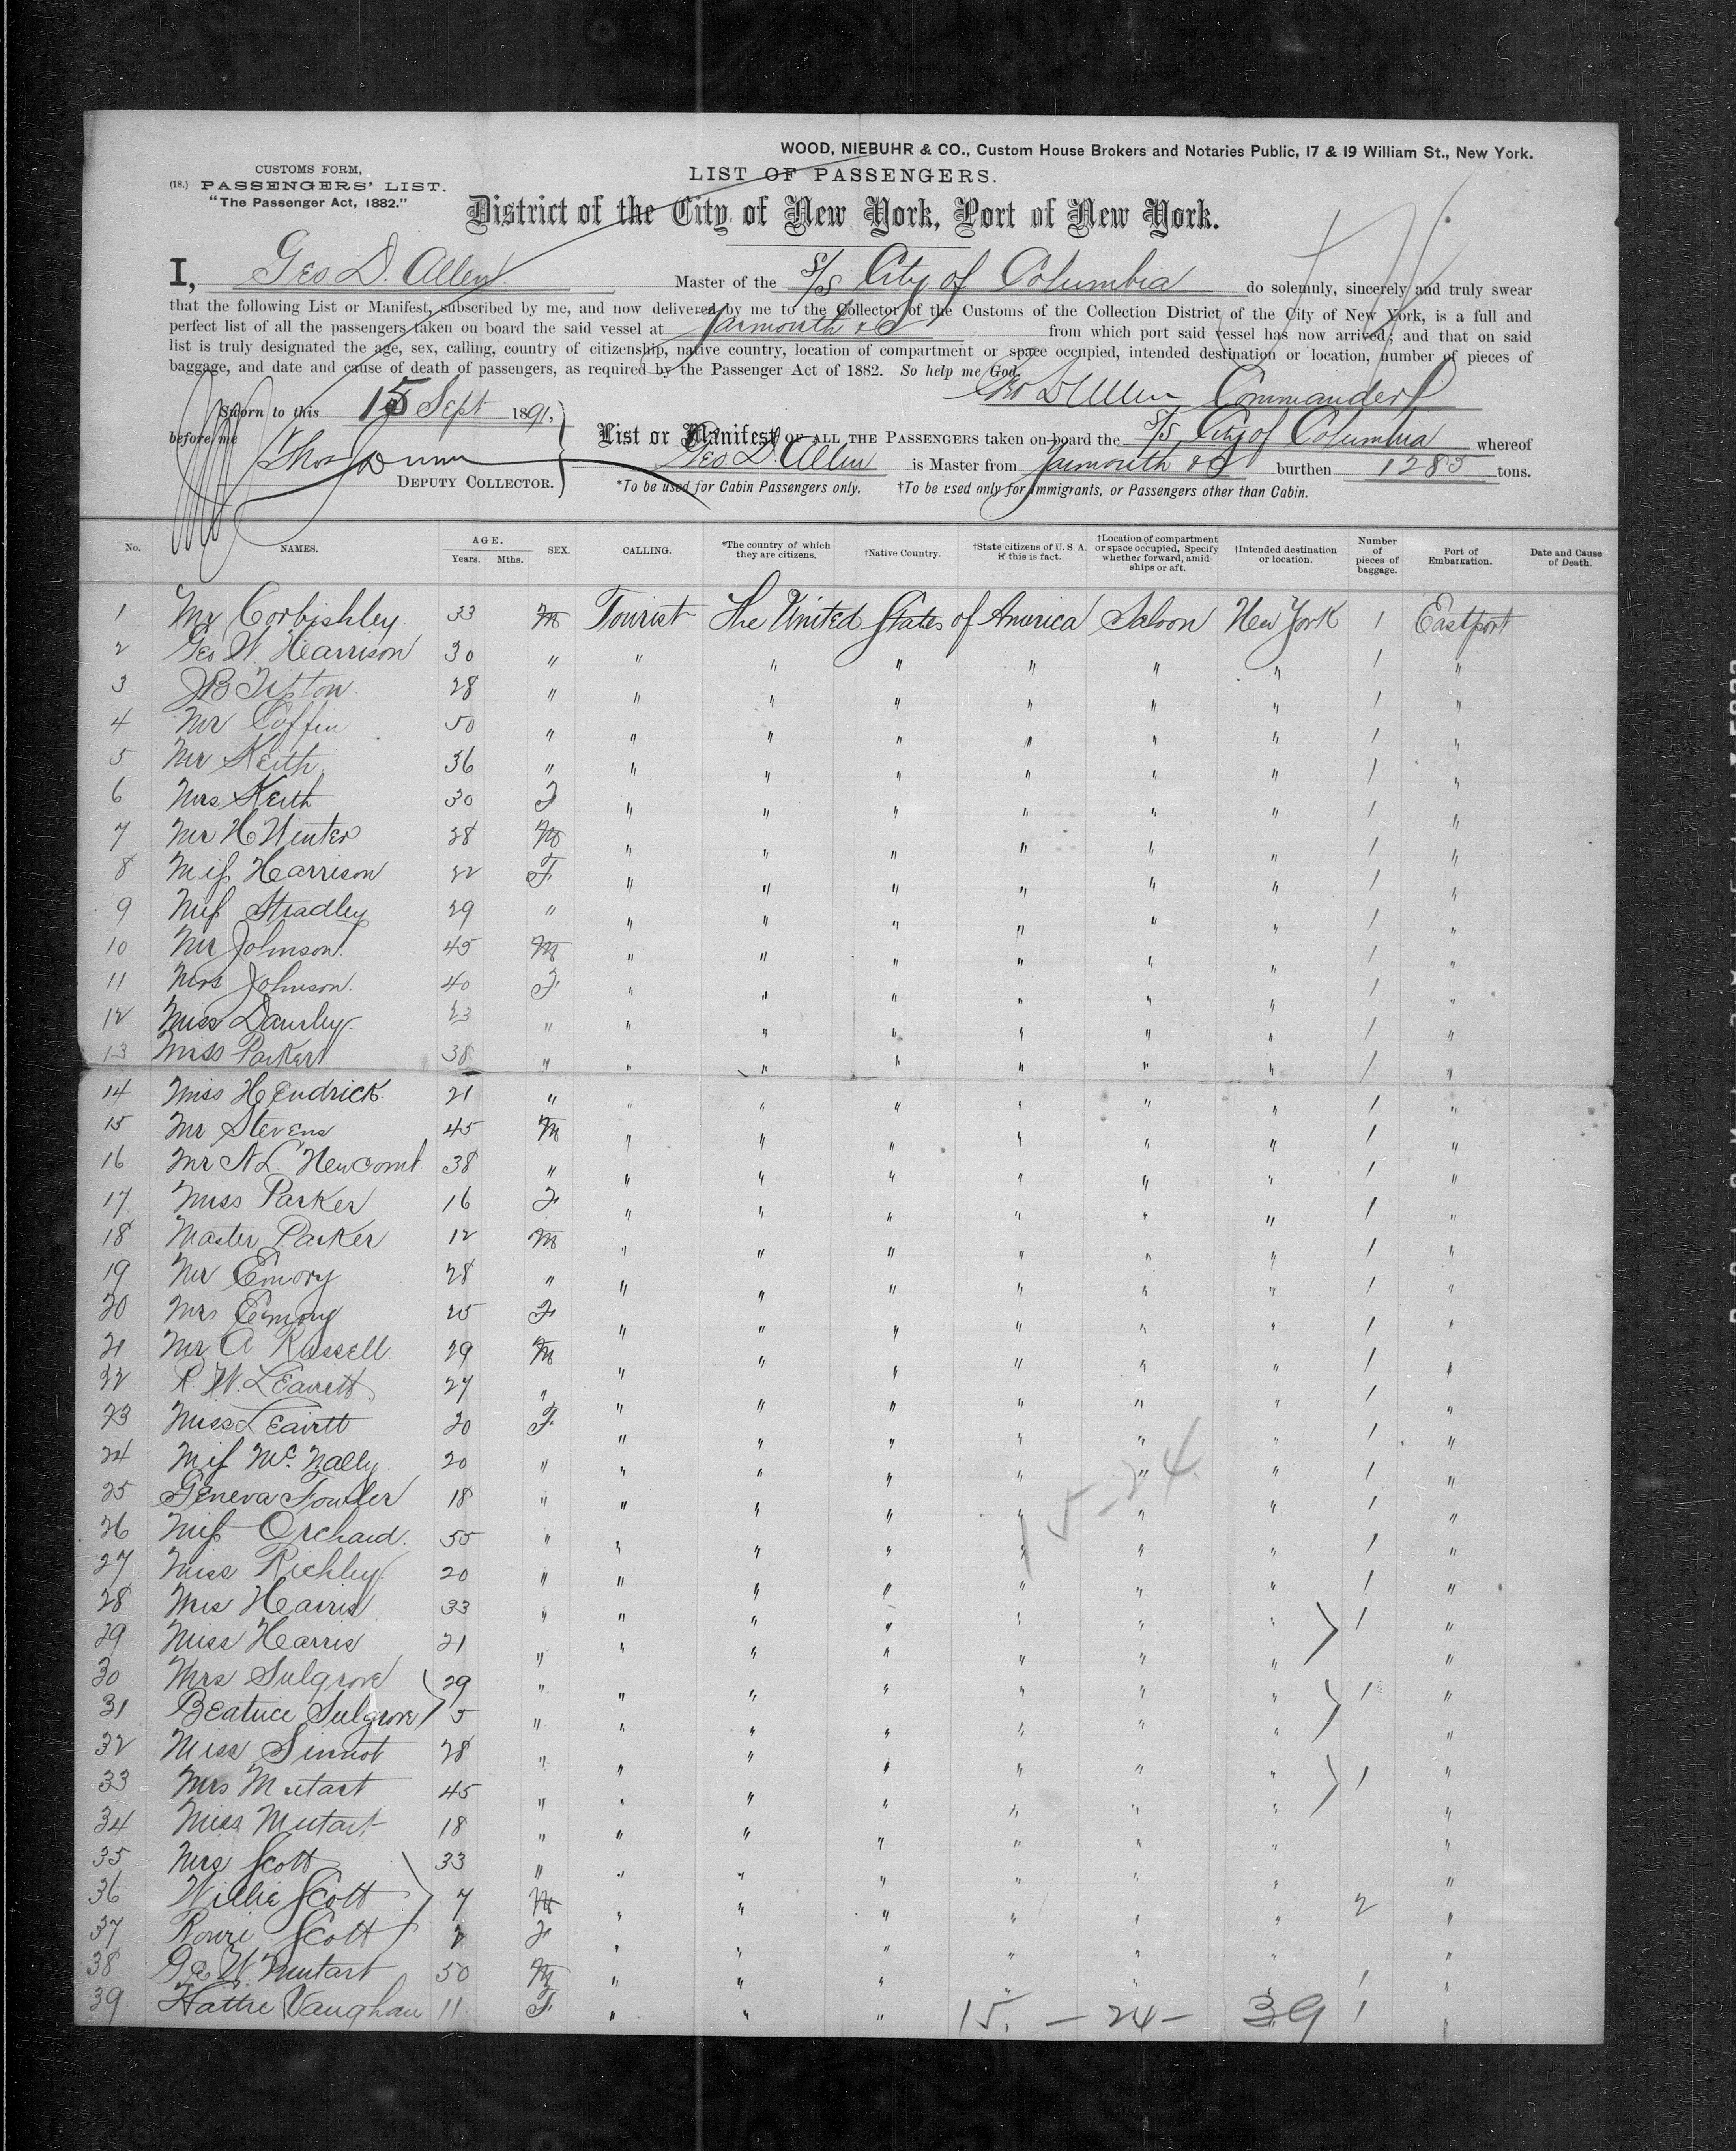 WOOD, NIEBUHR & CO., Custom House Brokers and Notaries Public, 17 & 19 William St., New York.
CUSTOMS FORM,
(18.) PASSENGERS' LIST.
"The Passenger Act, 1882."
LIST OF PASSENGERS.
District of the City of New York, Port of New York.
I, Geo D. Allen Master of the S/S City of Columbia do solemnly, sincerely and truly swear
that the following List or Manifest, subscribed by me, and now delivered by me to the Collector of the Customs of the Collection District of the City of New York, is a full and
perfect list of all the passengers taken on board the said vessel at Yarmouth from which port said vessel has now arrived; and that on said
list is truly designated the age, sex, calling, country of citizenship, native country, location of compartment or space occupied, intended destination or location, number of pieces of
baggage, and date and cause of death of passengers, as required by the Passenger Act of 1882. So help me God.
Geo D Allen Commander
Sworn to this 15 Sept 1891,
before me
Thos Dunn
DEPUTY COLLECTOR.
List or Manifest OF ALL THE PASSENGERS taken on board the S/S City of Columbia whereof
Geo. D. Allen is Master from Yarmouth burthen 1283 tons.
*To be used for Cabin Passengers only. †To be used only for Immigrants, or Passengers other than Cabin.
No. NAMES. AGE. Years. Mths. SEX. CALLING. *The country of which they are citizens. †Native Country. †State citizens of U. S. A. if this is fact. †Location of compartment or space occupied, Specify whether forward, amidships or aft. †Intended destination or location. Number of pieces of baggage. Port of Embarkation. Date and Cause of Death.
1 Mr Corbishley 33 M Tourist The United States of America Saloon New York 1 Eastport
2 Geo W. Harrison 30 " " " " " " " 1 "
3 J B Tipton 28 " " " " " " " 1 "
4 Mr Coffin 50 " " " " " " " 1 "
5 Mr Keith 36 " " " " " " " 1 "
6 Mrs Keith 30 F " " " " " " 1 "
7 Mr H Winter 28 M " " " " " " 1 "
8 Miss Harrison 22 F " " " " " " 1 "
9 Miss Stradley 29 " " " " " " " 1 "
10 Mr Johnson 45 M " " " " " " 1 "
11 Mrs Johnson. 40 F " " " " " " 1 "
12 Miss 23 " " " " " " " 1 "
13 Miss Parker 38 " " " " " " " 1 "
14 Miss Hendrick 21 " " " " " " " 1 "
15 Mr Stevens 45 M " " " " " " 1 "
16 Mr N L Newcomb 38 " " " " " " " 1 "
17 Miss Parker 16 F " " " " " " 1 "
18 Master Parker 12 M " " " " " " 1 "
19 Mr Emory 28 " " " " " " " 1 "
20 Mrs Emory 25 F " " " " " " 1 "
21 Mr A Russell 29 M " " " " " " 1 "
22 R. W. Leavitt 27 " " " " " " " 1 "
23 Miss Leavitt 20 F " " " " " " 1 "
24 Miss McNally 20 " " " " " " " 1 "
25 Geneva Fowler 18 " " " " " " " 1 "
15-24
26 Miss Orchard 55 " " " " " " " 1 "
27 Miss Richley 20 " " " " " " " 1 "
28 Mrs Harris 33 " " " " " " " 1 "
29 Miss Harris 21 " " " " " " " "
30 Mrs Sulgrove 29 " " " " " " " 1 "
31 Beatrice Sulgrove 5 " " " " " " " "
32 Miss Sinnot 28 " " " " " " " "
33 Mrs Mutart 45 " " " " " " " 1 "
34 Miss Mutart 18 " " " " " " " "
35 Mrs Scott 33 " " " " " " " "
36 Willie Scott 7 M " " " " " " 2 "
37 Scott 2 F " " " " " " "
38 Geo W. Mutart 50 M " " " " " " 1 "
39 Hattie Vaughan 11 F " " " 15. - 24 - 39 1 "